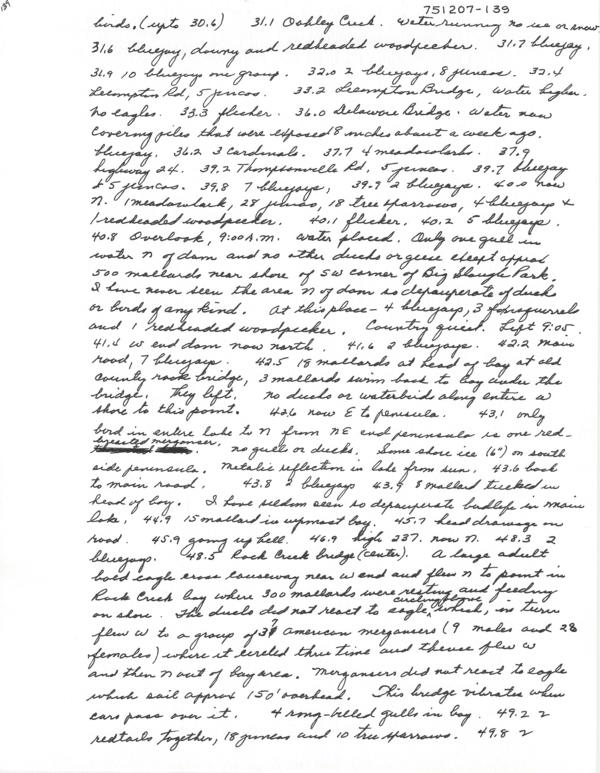 139
751207-139
birds. (up to 30.6) 31.1 Oakley Creek. Water running no ice or snow
31.6 bluejay, downy and redheaded woodpecker. 31.7 bluejay.
31.9 10 bluejays one group. 32.0 2 bluejays, 8 juncos. 32.4
Lecompton Rd, 5 juncos. 33.2 Lecompton Bridge, water higher.
No eagles. 33.3 flicker. 36.0 Delaware Bridge. Water now
covering piles that were exposed 8 inches about a week ago.
bluejay. 36.2 3 cardinals. 37.7 4 meadowlarks. 37.9
highway 24. 39.2 Thompsonville Rd, 5 juncos. 39.7 bluejay
& 5 juncos. 39.8 7 bluejays, 39.9 2 bluejays. 40.0 now
N. 1 meadowlark, 28 juncos, 18 tree sparrows, 4 bluejays &
1 redheaded woodpecker. 40.1 flicker, 40.2 5 bluejays.
40.8 Overlook, 9:00 A.M. water placed. Only one gull in
water N of dam and no other ducks or geese except approx
500 mallards near shore of SW corner of Big Slough Park.
I have never seen the area N of dam so depauperate of ducks
or birds of any kind. At this place - 4 bluejays, 3 fox squirrels
and 1 redheaded woodpecker. Country quiet. Left 9:05.
41.4 W end dam now north. 41.6 2 bluejays. 42.2 main
road, 7 bluejays. 42.5 18 mallards at head of bay at old
county rock bridge, 3 mallards swim back to bay under the
bridge. They left. No ducks or waterbirds along entire W
shore to this point. 42.6 now E to penisula. 43.1 only
bird in entire lake to N from NE end peninsula is one red-
breasted merganser. no gulls or ducks. Some shore ice (6") on south
side peninsula. Metalic reflection in lake from sun. 43.6 back
to main road. 43.8 2 bluejays 43.9 8 mallard tucked in
head of bay. I have seldom seen so depauperate birdlife in main
lake. 44.9 15 mallard in upmost bay. 45.7 head drainage on
road. 45.9 going up hill. 46.9 high 237. now N. 48.3 2
bluejays. 48.5 Rock Creek bridge (center). A large adult
bald eagle cross causeway near W end and flew N to point in
Rock Creek bay where 300 mallards were resting and feeding
on shore. The ducks did not react to eagle, which, in turn
flew W to a group of 37 american mergansers (9 males and 28
females) where it circled three time and thence flew W
and then N out of bay area. Mergansers did not react to eagle
which sail approx 150' overhead. This bridge vibrates when
cars pass over it. 4 rong-billed gulls in bay. 49.2 2
redtails together, 18 juncos and 10 tree sparrows. 49.8 2